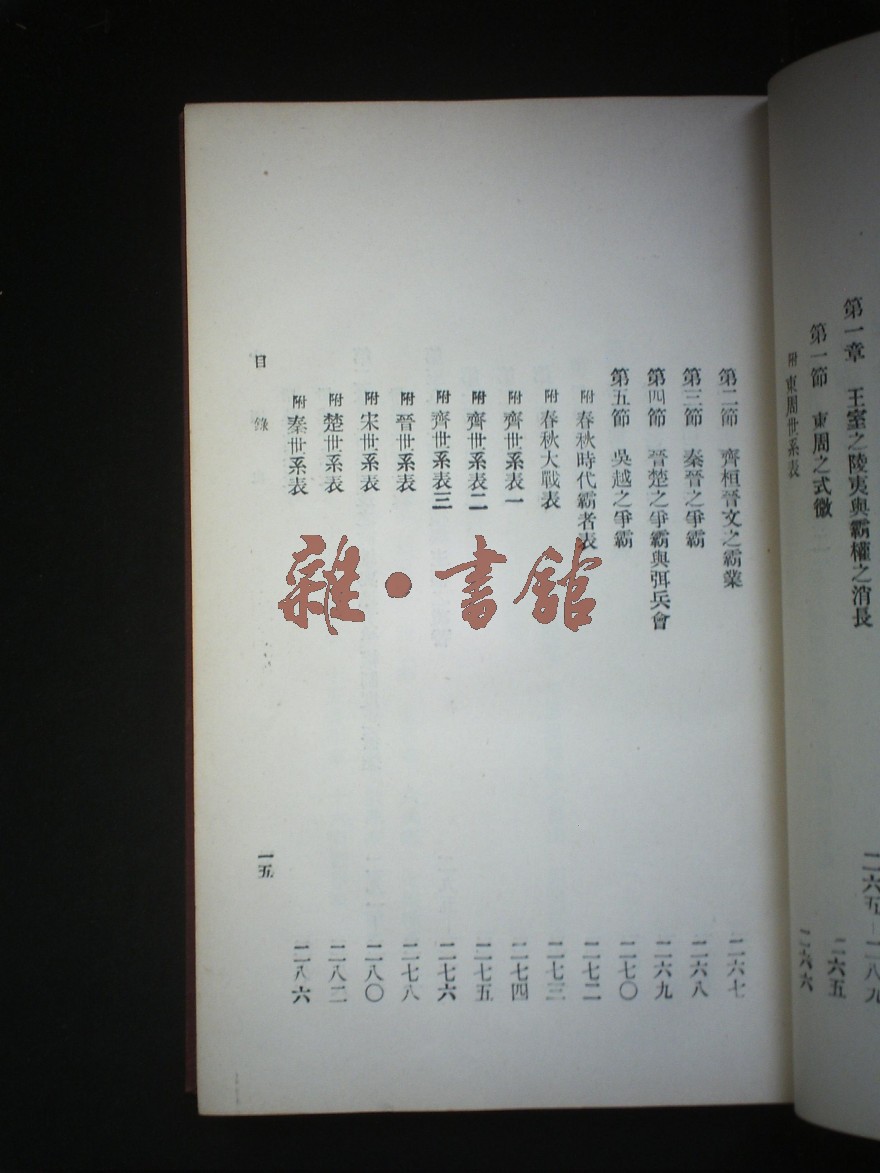 第一章　王室之陵夷與霸權之消長　二六五－二八九
第一節　東周之式微　二六五
附　東周世系表　二六六
第二節　齊桓晉文之霸業　二六七
第三節　秦晉之爭霸　二六八
第四節　晉楚之爭霸與弭兵會　二六九
第五節　吳越之爭霸　二七〇
附　春秋時代霸者表　二七二
附　春秋大戰表　二七三
附　齊世系表一　二七四
附　齊世系表二　二七五
附　齊世系表三　二七六
附　晉世系表　二七八
附　宋世系表　二八〇
附　楚世系表　二八二
附　秦世系表　二八六
目錄　一五
雜·書館